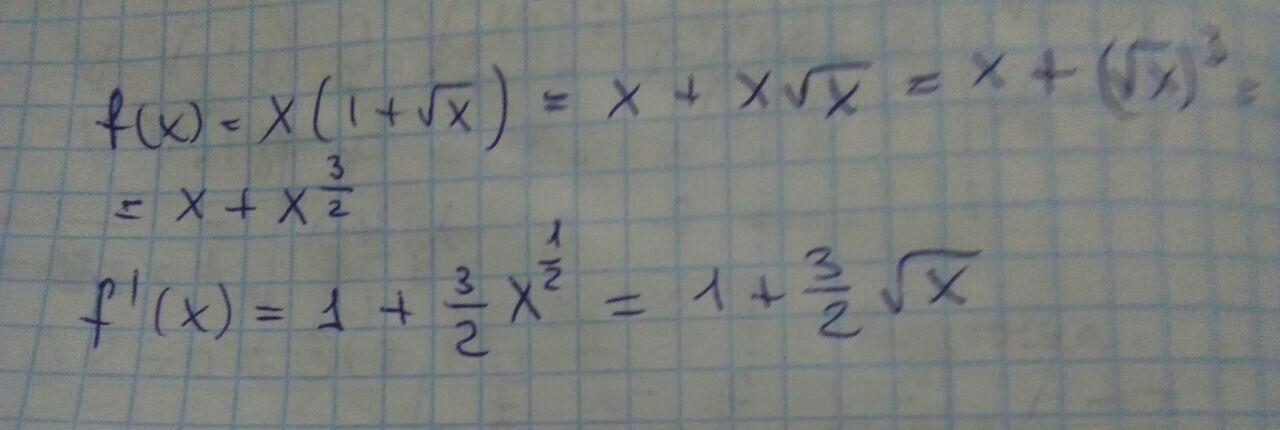 f(x) = x(1 + √x) = x + x√x = x + (√x)³ =
= x + x^(3/2)
f'(x) = 1 + 3/2 x^(1/2) = 1 + 3/2 √x